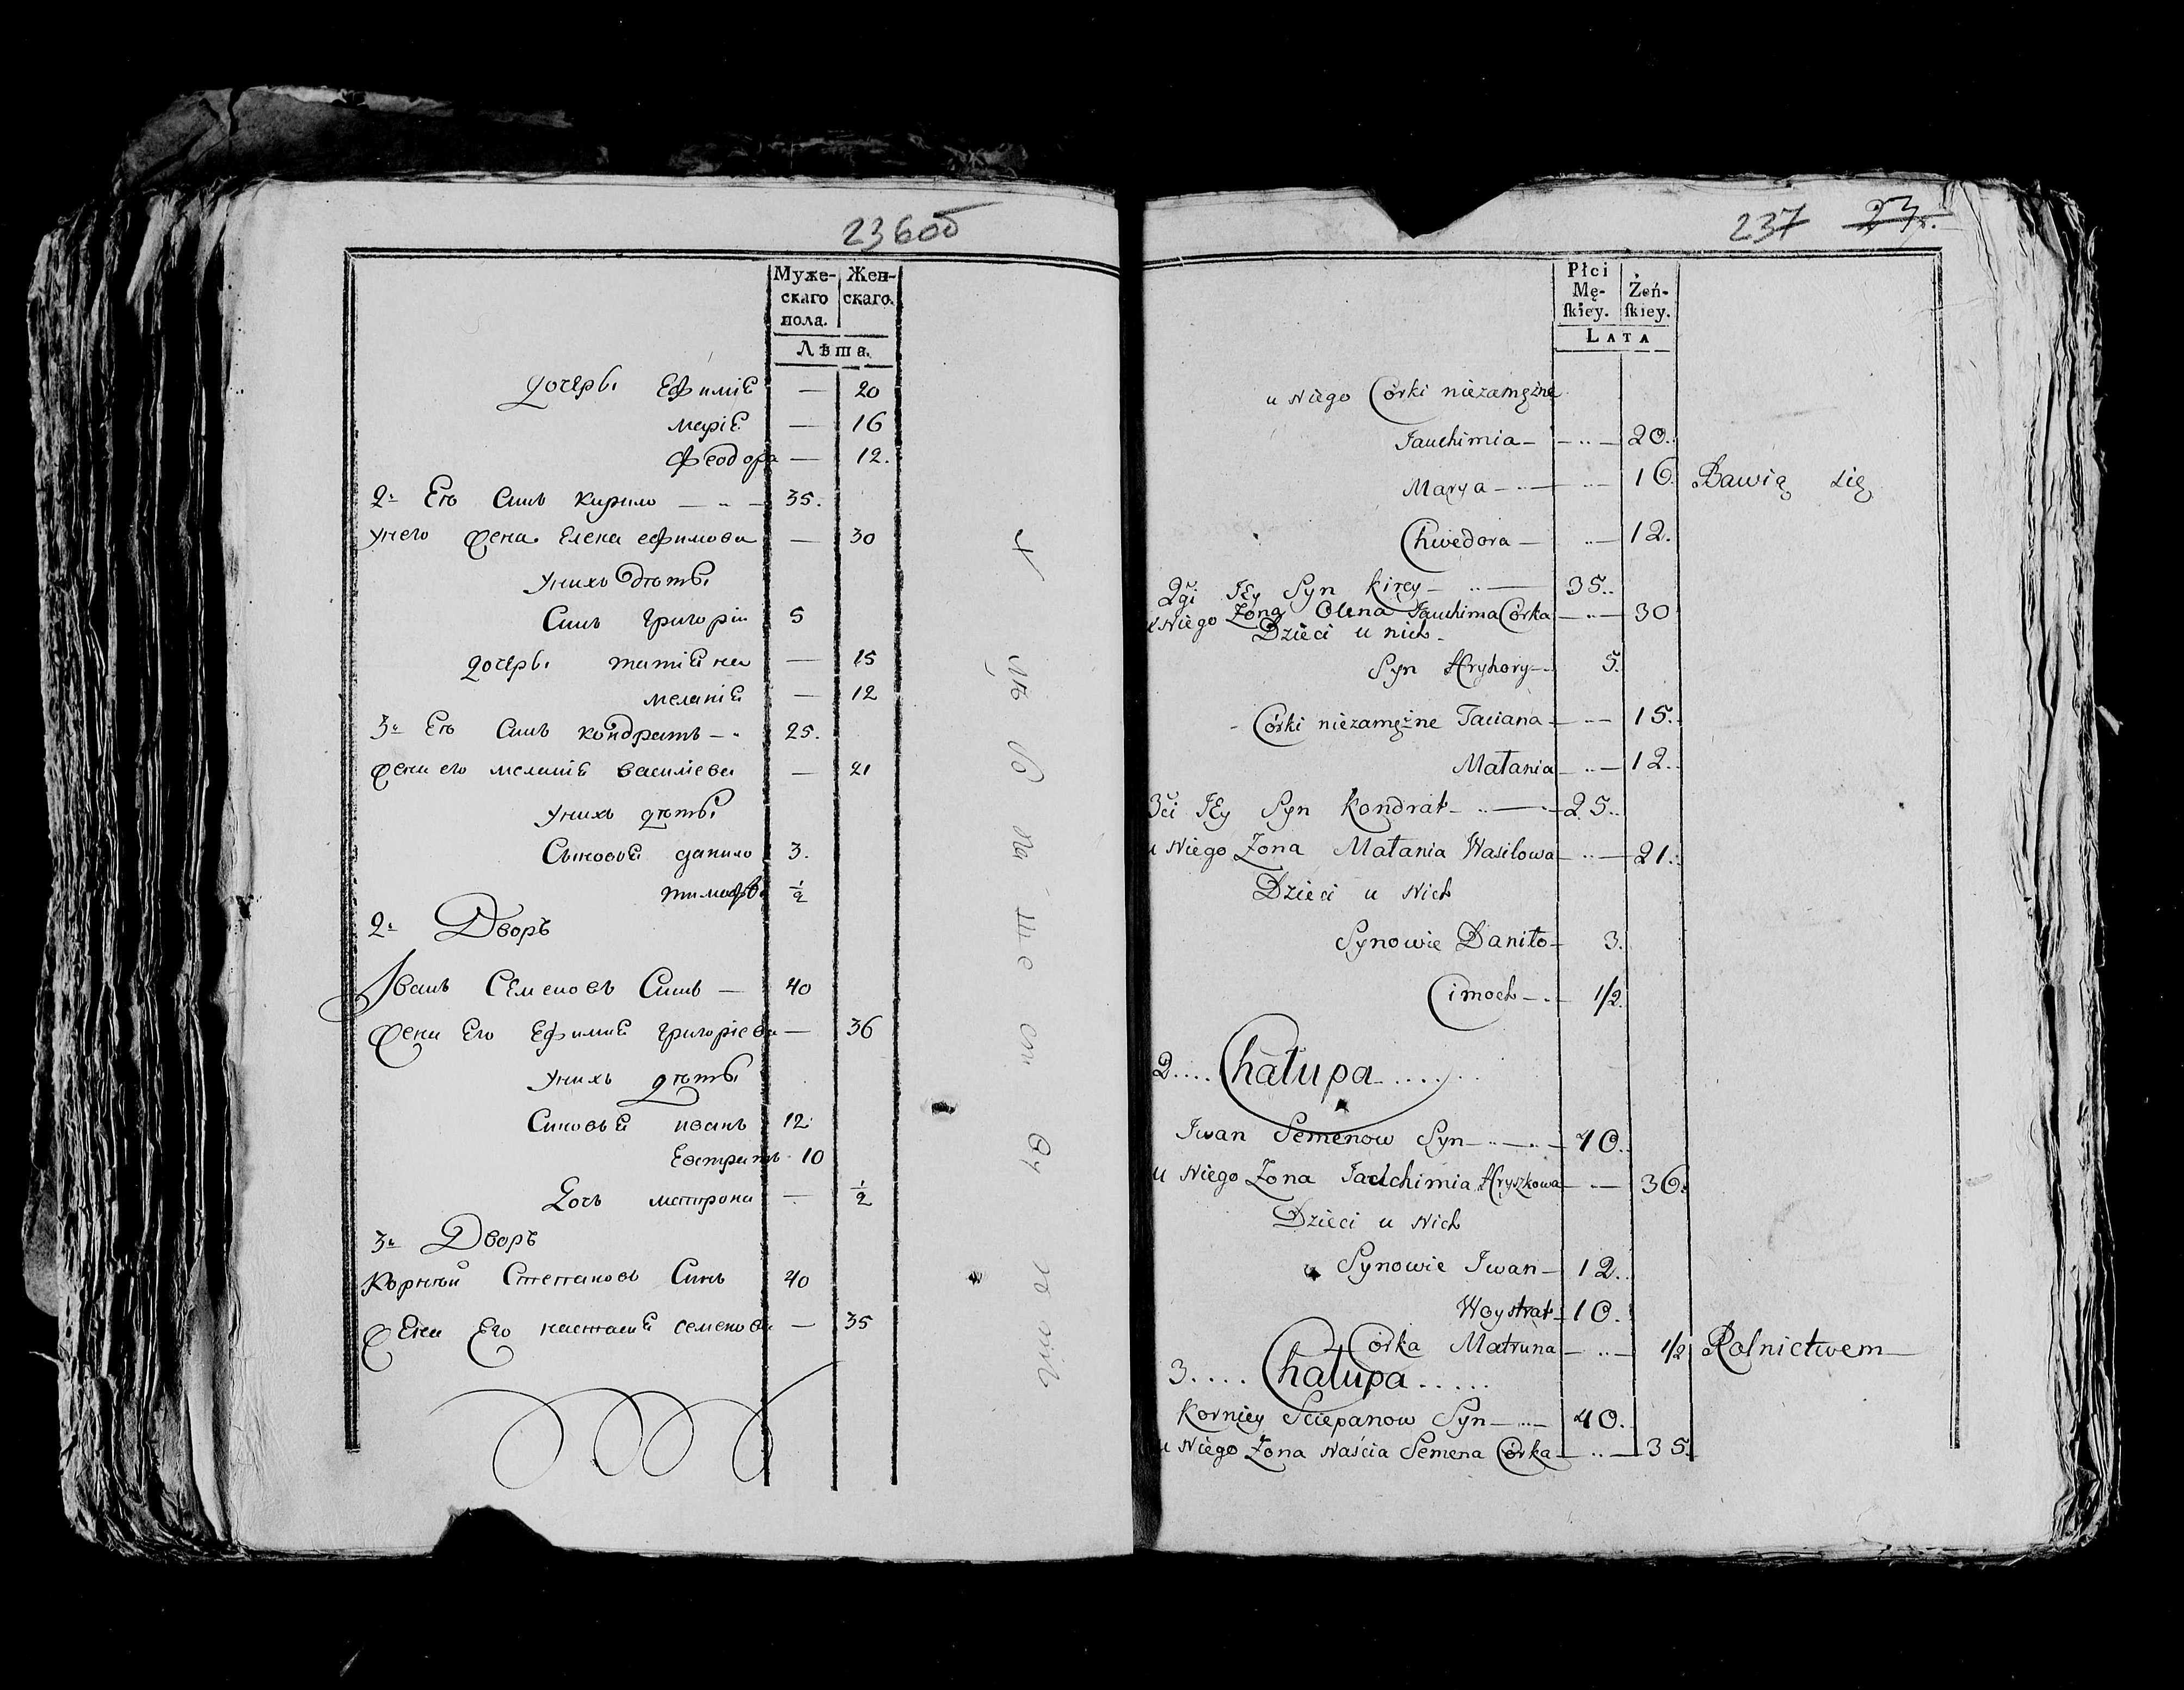 236об
Муже-
скаго
пола.
Жен-
скаго.
Лѣта.
дочерьі Ефиміѣ — 20
маріѣ — 16
феодора — 12.
2й Его Синъ кирило — 35.
унего жена Елена ефимова — 30
Унихъ дѣтьі
Синъ григорій 5
дочерьі татіѣна — 15
меланіѣ — 12
3й Его Синъ кондратъ — 25.
жена его меланіѣ василіева — 21
Унихъ дѣтьі
Сыновьѣ данило 3.
тимофѣ ½
2й Дворъ
Іванъ Семеновъ Синъ — 40
жена Его Ефиміѣ григоріева — 36
Унихъ дѣтьі
Синовьѣ иванъ 12.
Евтратъ 10
Дочь матрона — ½
3й Дворъ
Корнѣй Степановъ Синъ 40
жена Его настасиѣ семенова — 35
237
Płci
Mę-
ſkiey.
Żeń-
ſkiey.
LATA
u Niego Córki niezamężne
Jauchimia — 20.
Marya — 16. Bawią się
Chwedora — 12.
2gi JEy Syn Kirey — 35.
u Niego Zona Olena Jauchima Córka — 30
Dzieci u nich
Syn Hryhory 5.
Córki niezamężne Taciana — 15.
Małania — 12.
3ci JEy Syn Kondrat — 25.
u Niego Zona Małania Wasilowa — 21.
Dzieci u Nich
Synowie Daniło 3.
Cimoch 1/2
2.... Chałupa.....
Iwan Semenow Syn — 40.
u Niego Zona Jauchimia Hryszkowa — 36.
Dzieci u Nich
Synowie Iwan — 12.
Woystrat 10.
Córka Matruna — 1/2 Rolnictwem
3.... Chałupa.....
Korniey Sciepanow Syn — 40.
u Niego Zona Naścia Semena Córka — 35.